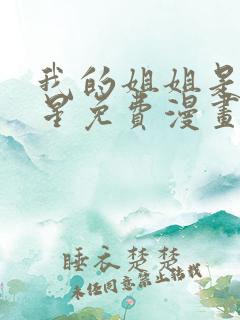 我的姐姐是
星免費漫畫
睡衣楚楚
未经同意禁止转载